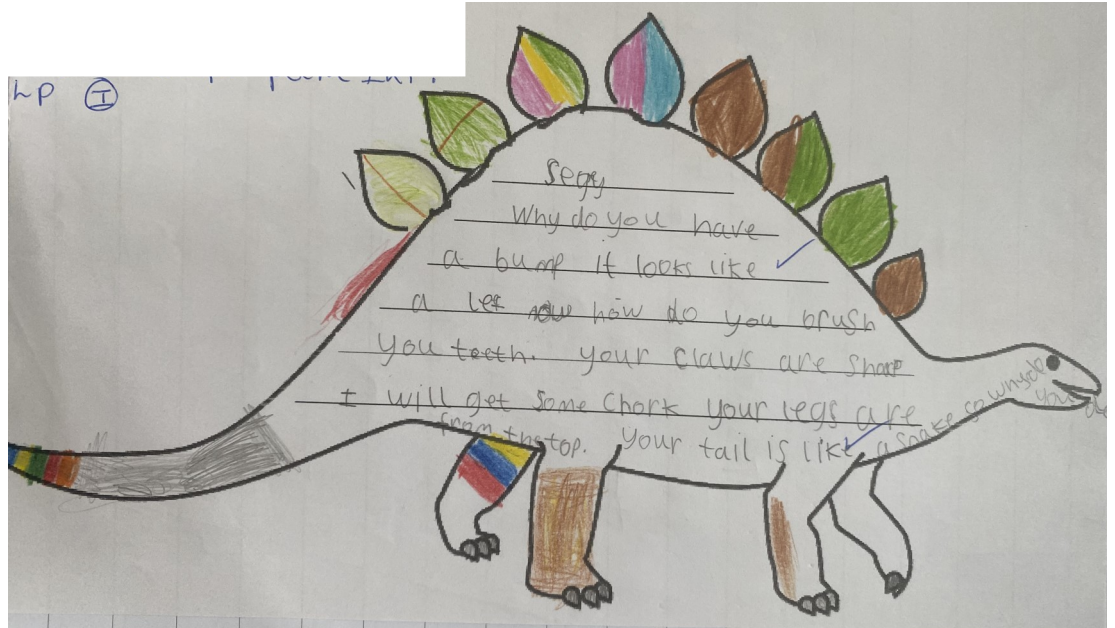 LP I
Segy
Why do you have
a bump it looks like
a lef how do you brush
you teeth. your claws are sharp
I will get some chork your legs are
from thstop. your tail is like a snake so whydo you